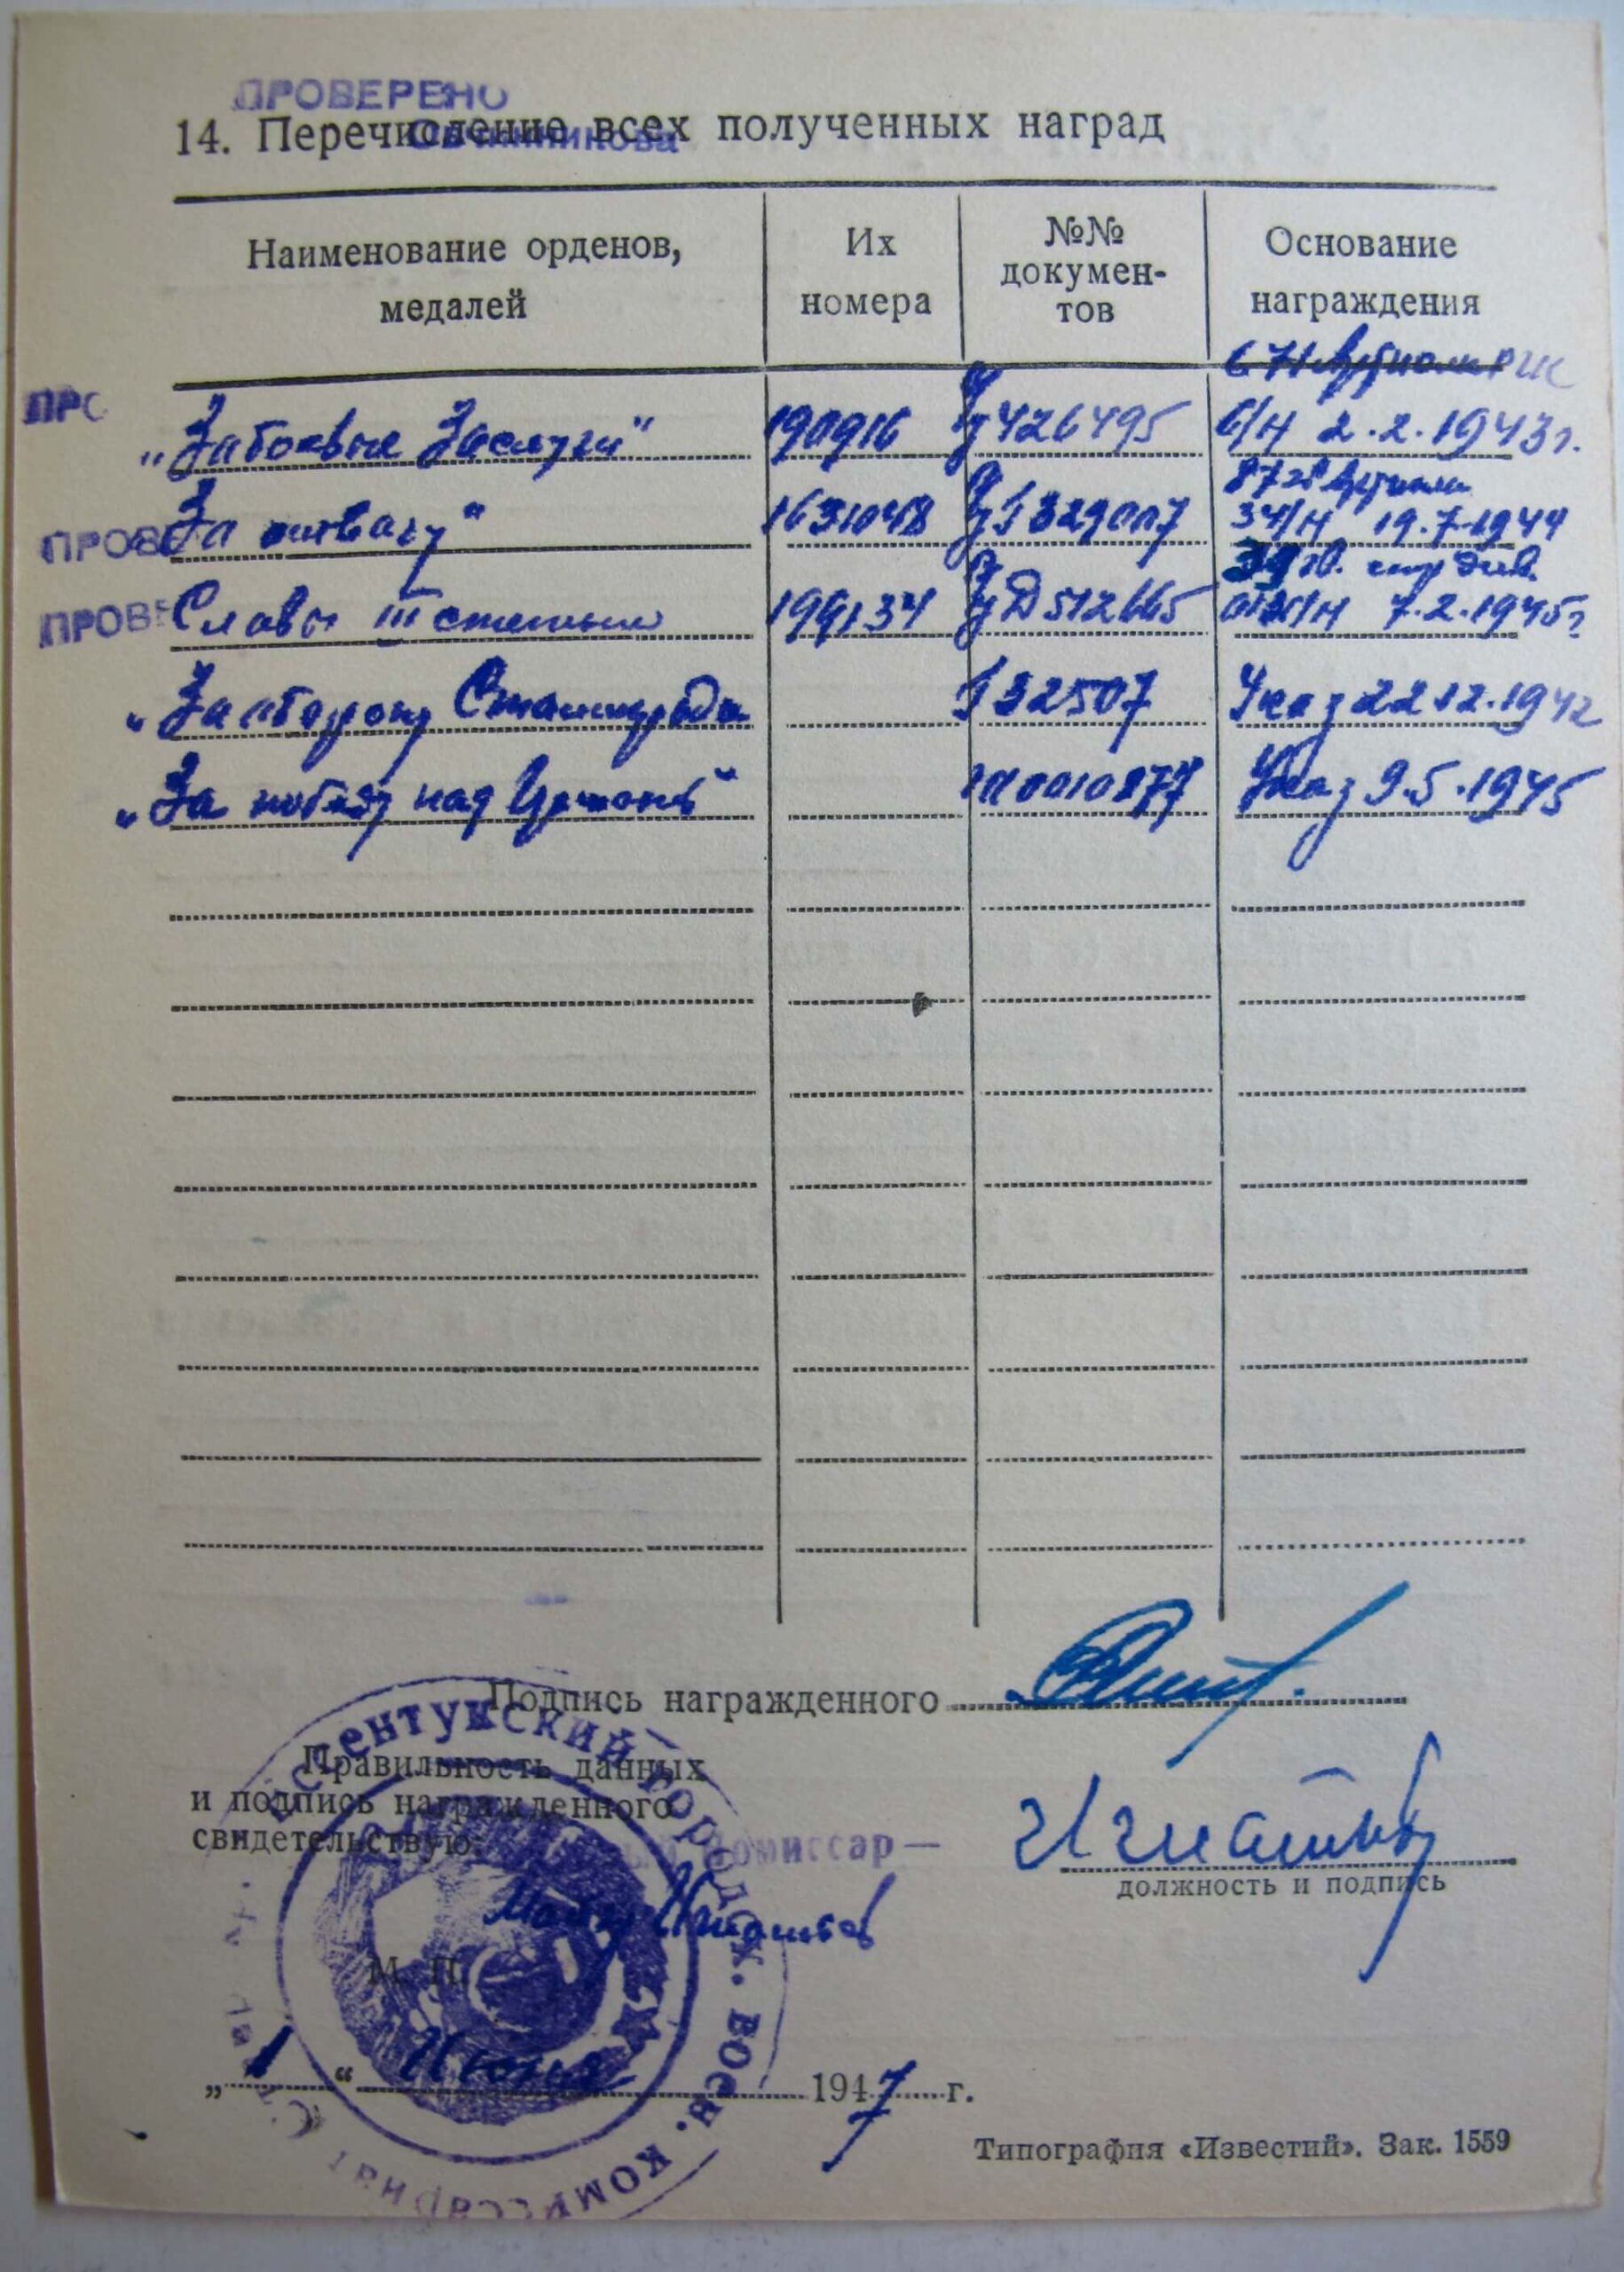 ПРОВЕРЕНО
14. Перечисление всех полученных наград
Наименование орденов, медалей
Их номера
№№ докумен-тов
Основание награждения
ПРО
"За боевые Заслуги" 190916 426495 6/Н 2.2.1943г.
ПРОВЕ
За отвагу" 1631048 329007 34/Н 19.7.1944
39 гв. стр див.
ПРОВЕ
Славы III степени 199134 512665 /Н 7.2.1945г
"За оборону Сталинграда 32507 Указ 22 12.1942
"За победу над Германией" 0010877 Указ 9.5.1945
Подпись награжденного
Правильность данных
и подпись награжденного
свидетельствую:
комиссар —
Игнатьев
должность и подпись
Майор Игнатьев
М. П.
Ессентукский городск. воен. комиссариат
"1" Июня 1947 г.
Типография «Известий». Зак. 1559